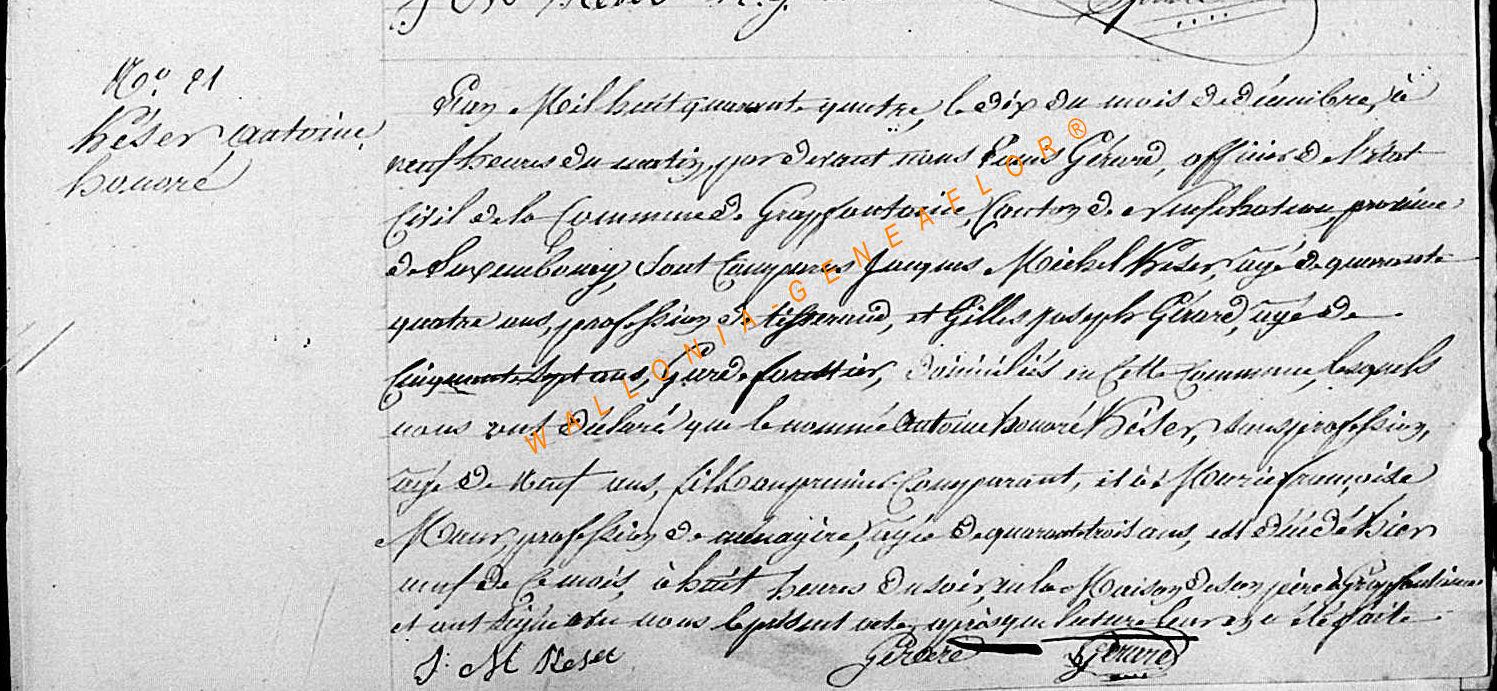 No. 21
Késer Antoine
honoré
L'an Mil huit quarante quatre, le dix du mois de décembre, à
neuf heures du matin, par devant nous Louis Gérard, officier de l'état
Civil de la Commune de Grapfontaine, Canton de Neufchateau, province
de Luxembourg, sont Comparus Jacques Michel Késer, agé de quarante
quatre ans, profession de tisserand, et Gilles joseph Gérard, agé de
Cinquante sept ans, Garde forettier, domiciliés en Cette Commune, lesquels
nous ont déclaré que le nommé Antoine honoré Késer, sans profession,
agé de neuf ans, fils au premier Comparant, et à Marie françoise
profession de ménagère, agée de quarante trois ans, est décédé hier
neuf de Ce mois, à huit heures du soir, en la Maison de son père à Grapfontaine
et ont signé avec nous le présent acte, après que lecture leur en a été faite
J. M Keser Gérard Gérard
WALLONIA-GENEAFLOR®